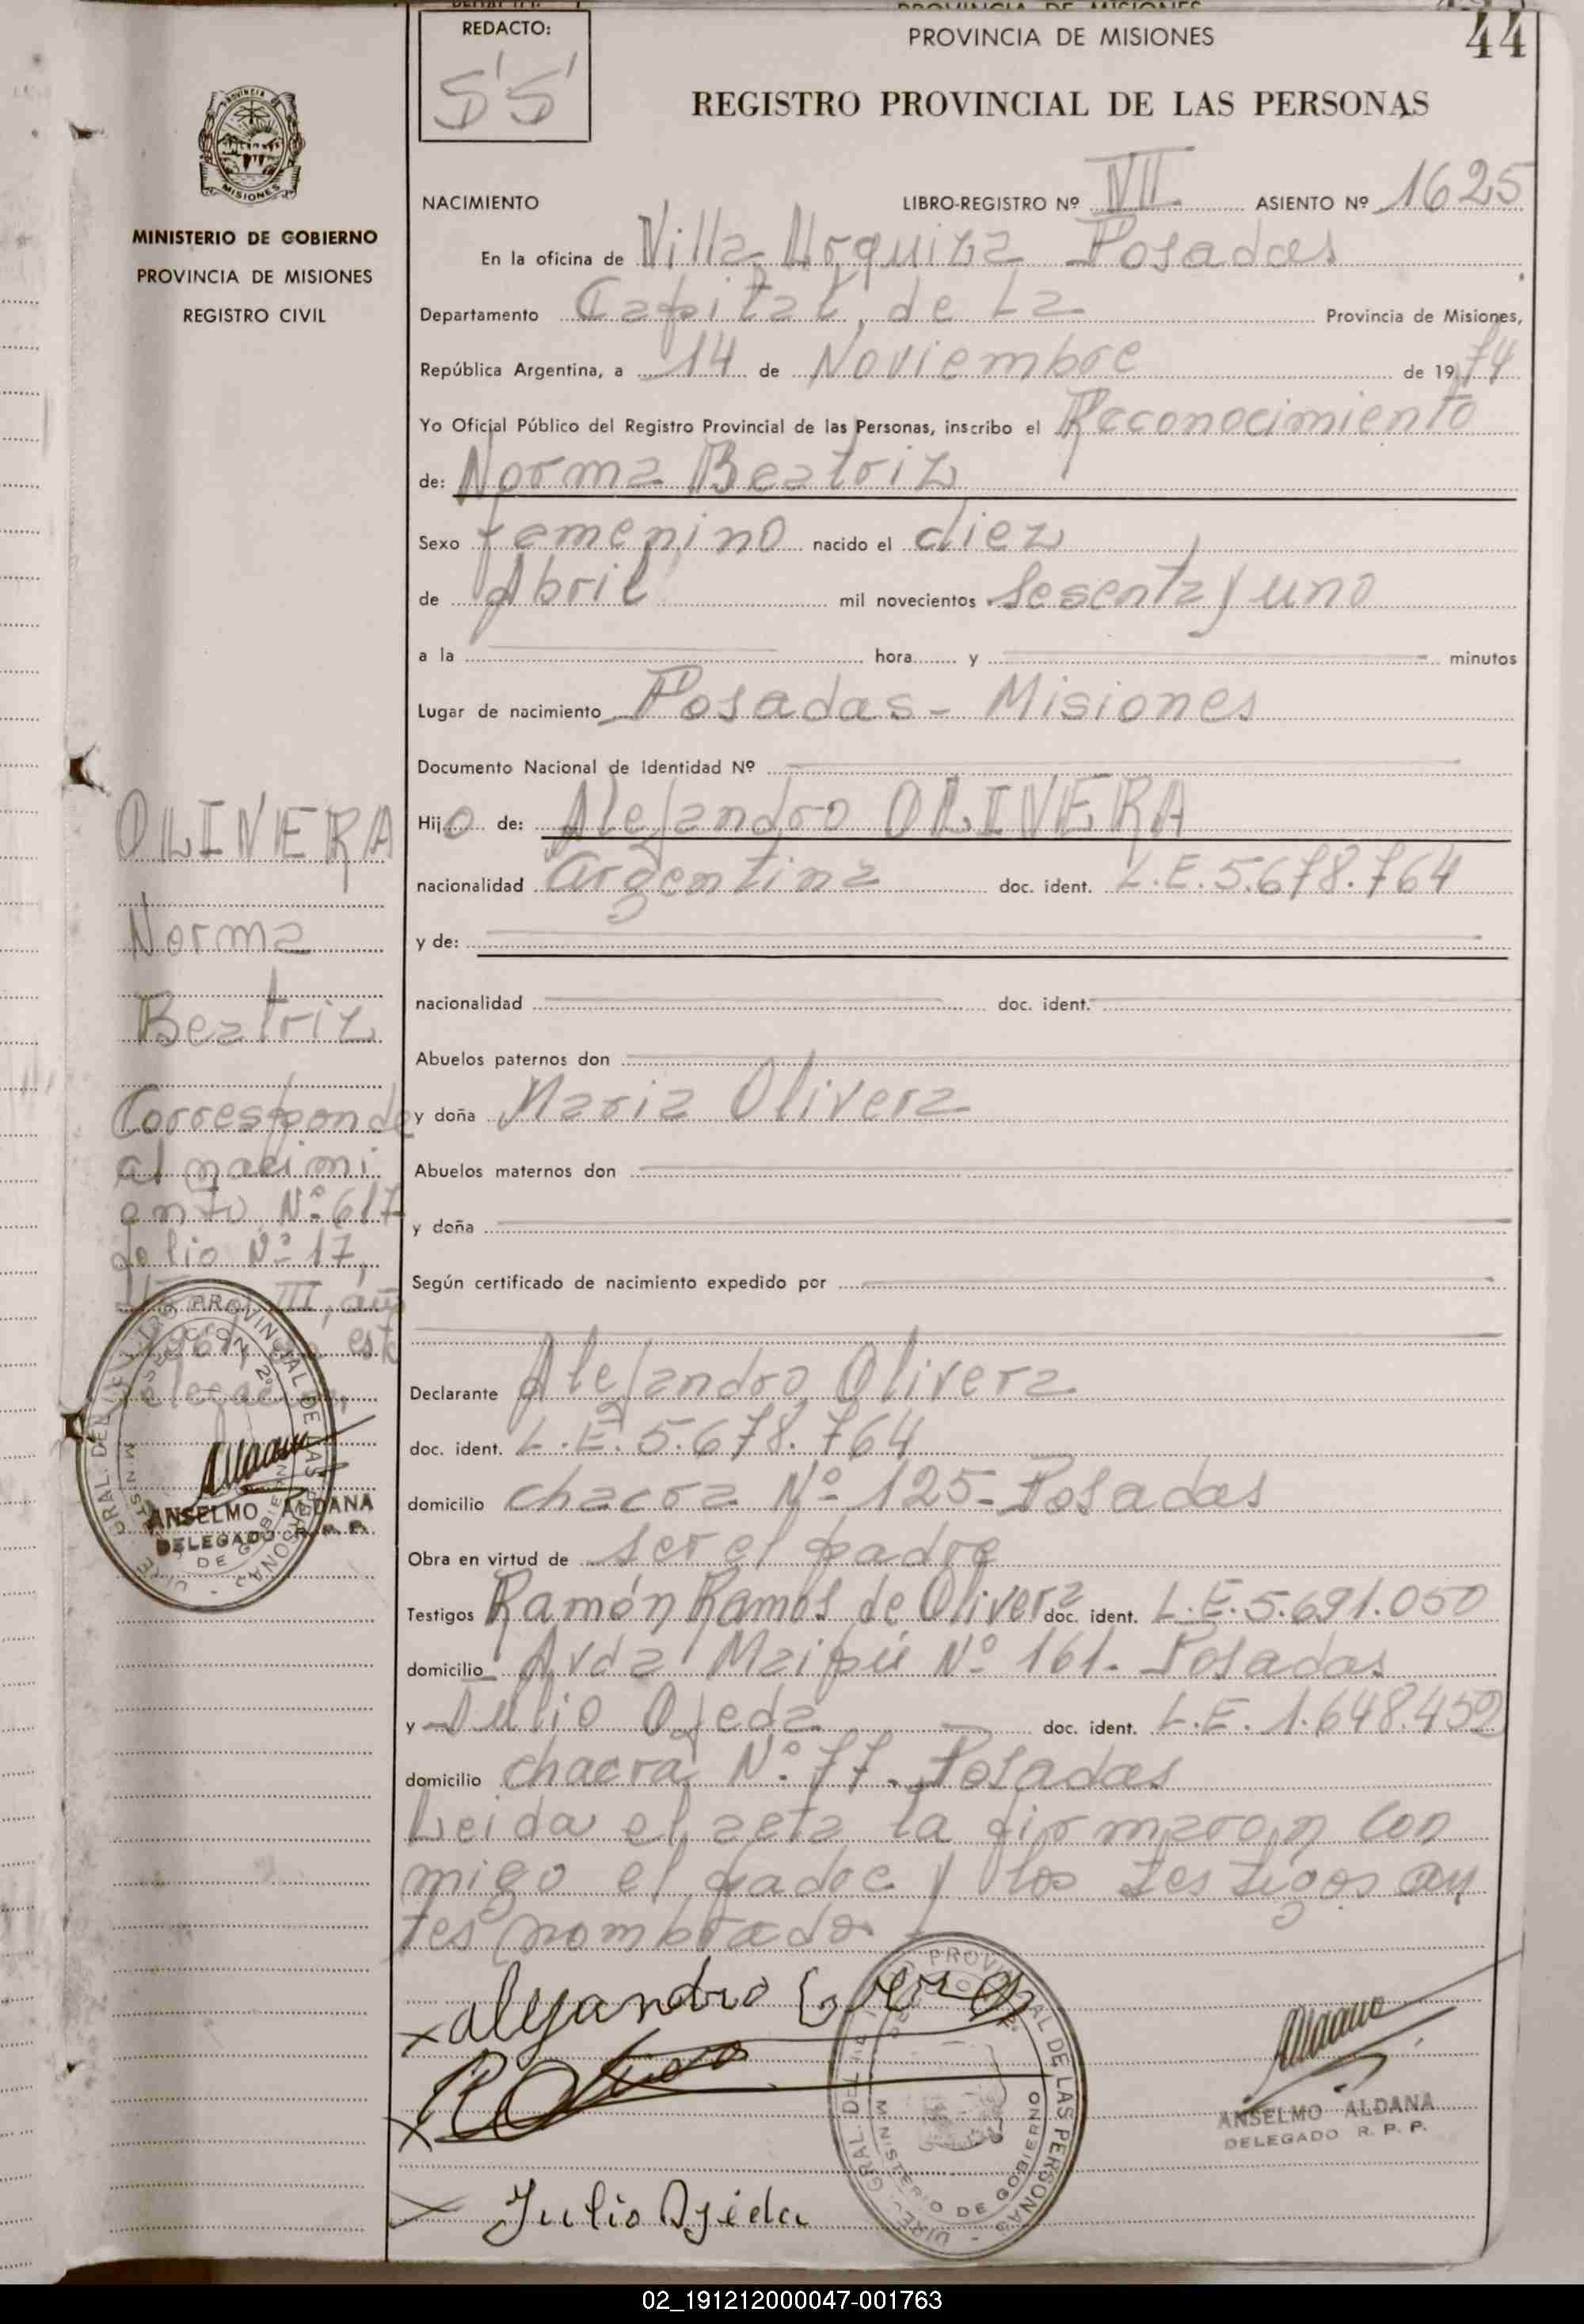 REDACTO:
55
PROVINCIA DE MISIONES
44
REGISTRO PROVINCIAL DE LAS PERSONAS
PROVINCIA
MISIONES
MINISTERIO DE GOBIERNO
PROVINCIA DE MISIONES
REGISTRO CIVIL
NACIMIENTO LIBRO-REGISTRO Nº VII ASIENTO Nº 1625
En la oficina de Villa Urquiza Posadas
Departamento Capital, de La Provincia de Misiones,
República Argentina, a 14 de Noviembre de 1974
Yo Oficial Público del Registro Provincial de las Personas, inscribo el Reconocimiento
de: Norma Beatriz
Sexo femenino nacido el diez
de Abril mil novecientos Sesenta y uno
a la hora y minutos
Lugar de nacimiento Posadas - Misiones
Documento Nacional de Identidad Nº
Hijo de: Alejandro OLIVERA
nacionalidad argentina doc. ident. L.E. 5.678.764
y de:
nacionalidad doc. ident.
Abuelos paternos don
y doña Maria Olivera
Abuelos maternos don
y doña
Según certificado de nacimiento expedido por
Declarante Alejandro Olivera
doc. ident. L.E. 5.678.764
domicilio chacra Nº 125 - Posadas
Obra en virtud de ser el padre
Testigos Ramón Ramos de Olivera doc. ident. L.E. 5.691.050
domicilio Avda Maipú Nº 161. Posadas
y Julio Ojeda doc. ident. L.E. 1.648.459
domicilio chacra Nº 77. Posadas
Leida el acta la firmaron con
migo el padre y los testigos an
tes nombrado
OLIVERA
Norma
Beatriz
Corresponde
al nacimi
ento Nº 617
folio Nº 17,
III, año
ANSELMO ALDANA
DELEGADO R. P. P.
alejandro
Julio Ojeda
DIRE. GRAL. DEL REGISTRO PROVINCIAL DE LAS PERSONAS
MINISTERIO DE GOBIERNO
ANSELMO ALDANA
DELEGADO R. P. P.
02_191212000047-001763